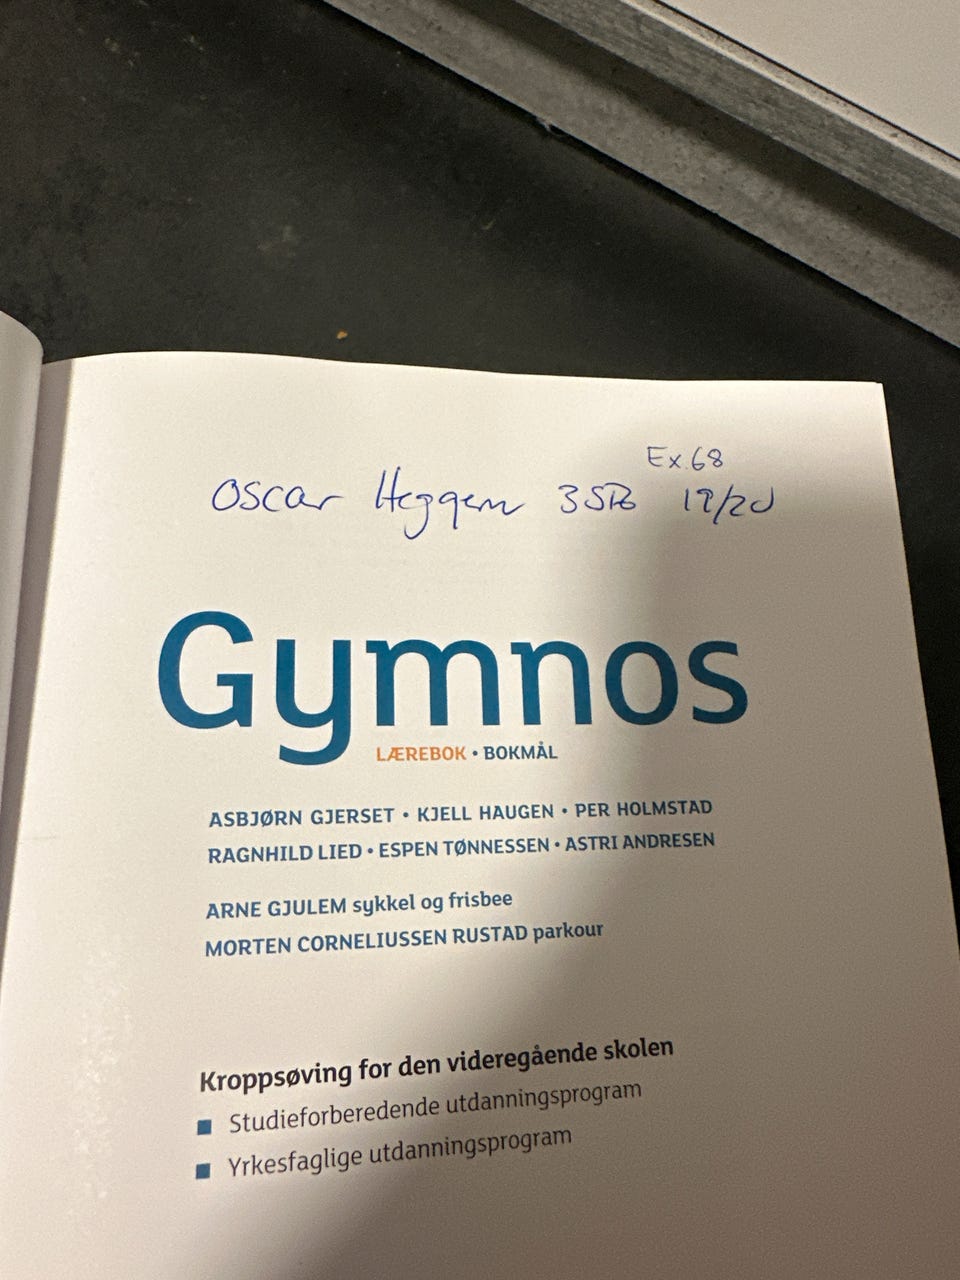 Ex.68
Oscar Heggem 3STB 19/20
Gymnos
LÆREBOK • BOKMÅL
ASBJØRN GJERSET • KJELL HAUGEN • PER HOLMSTAD
RAGNHILD LIED • ESPEN TØNNESSEN • ASTRI ANDRESEN
ARNE GJULEM sykkel og frisbee
MORTEN CORNELIUSSEN RUSTAD parkour
Kroppsøving for den videregående skolen
Studieforberedende utdanningsprogram
Yrkesfaglige utdanningsprogram